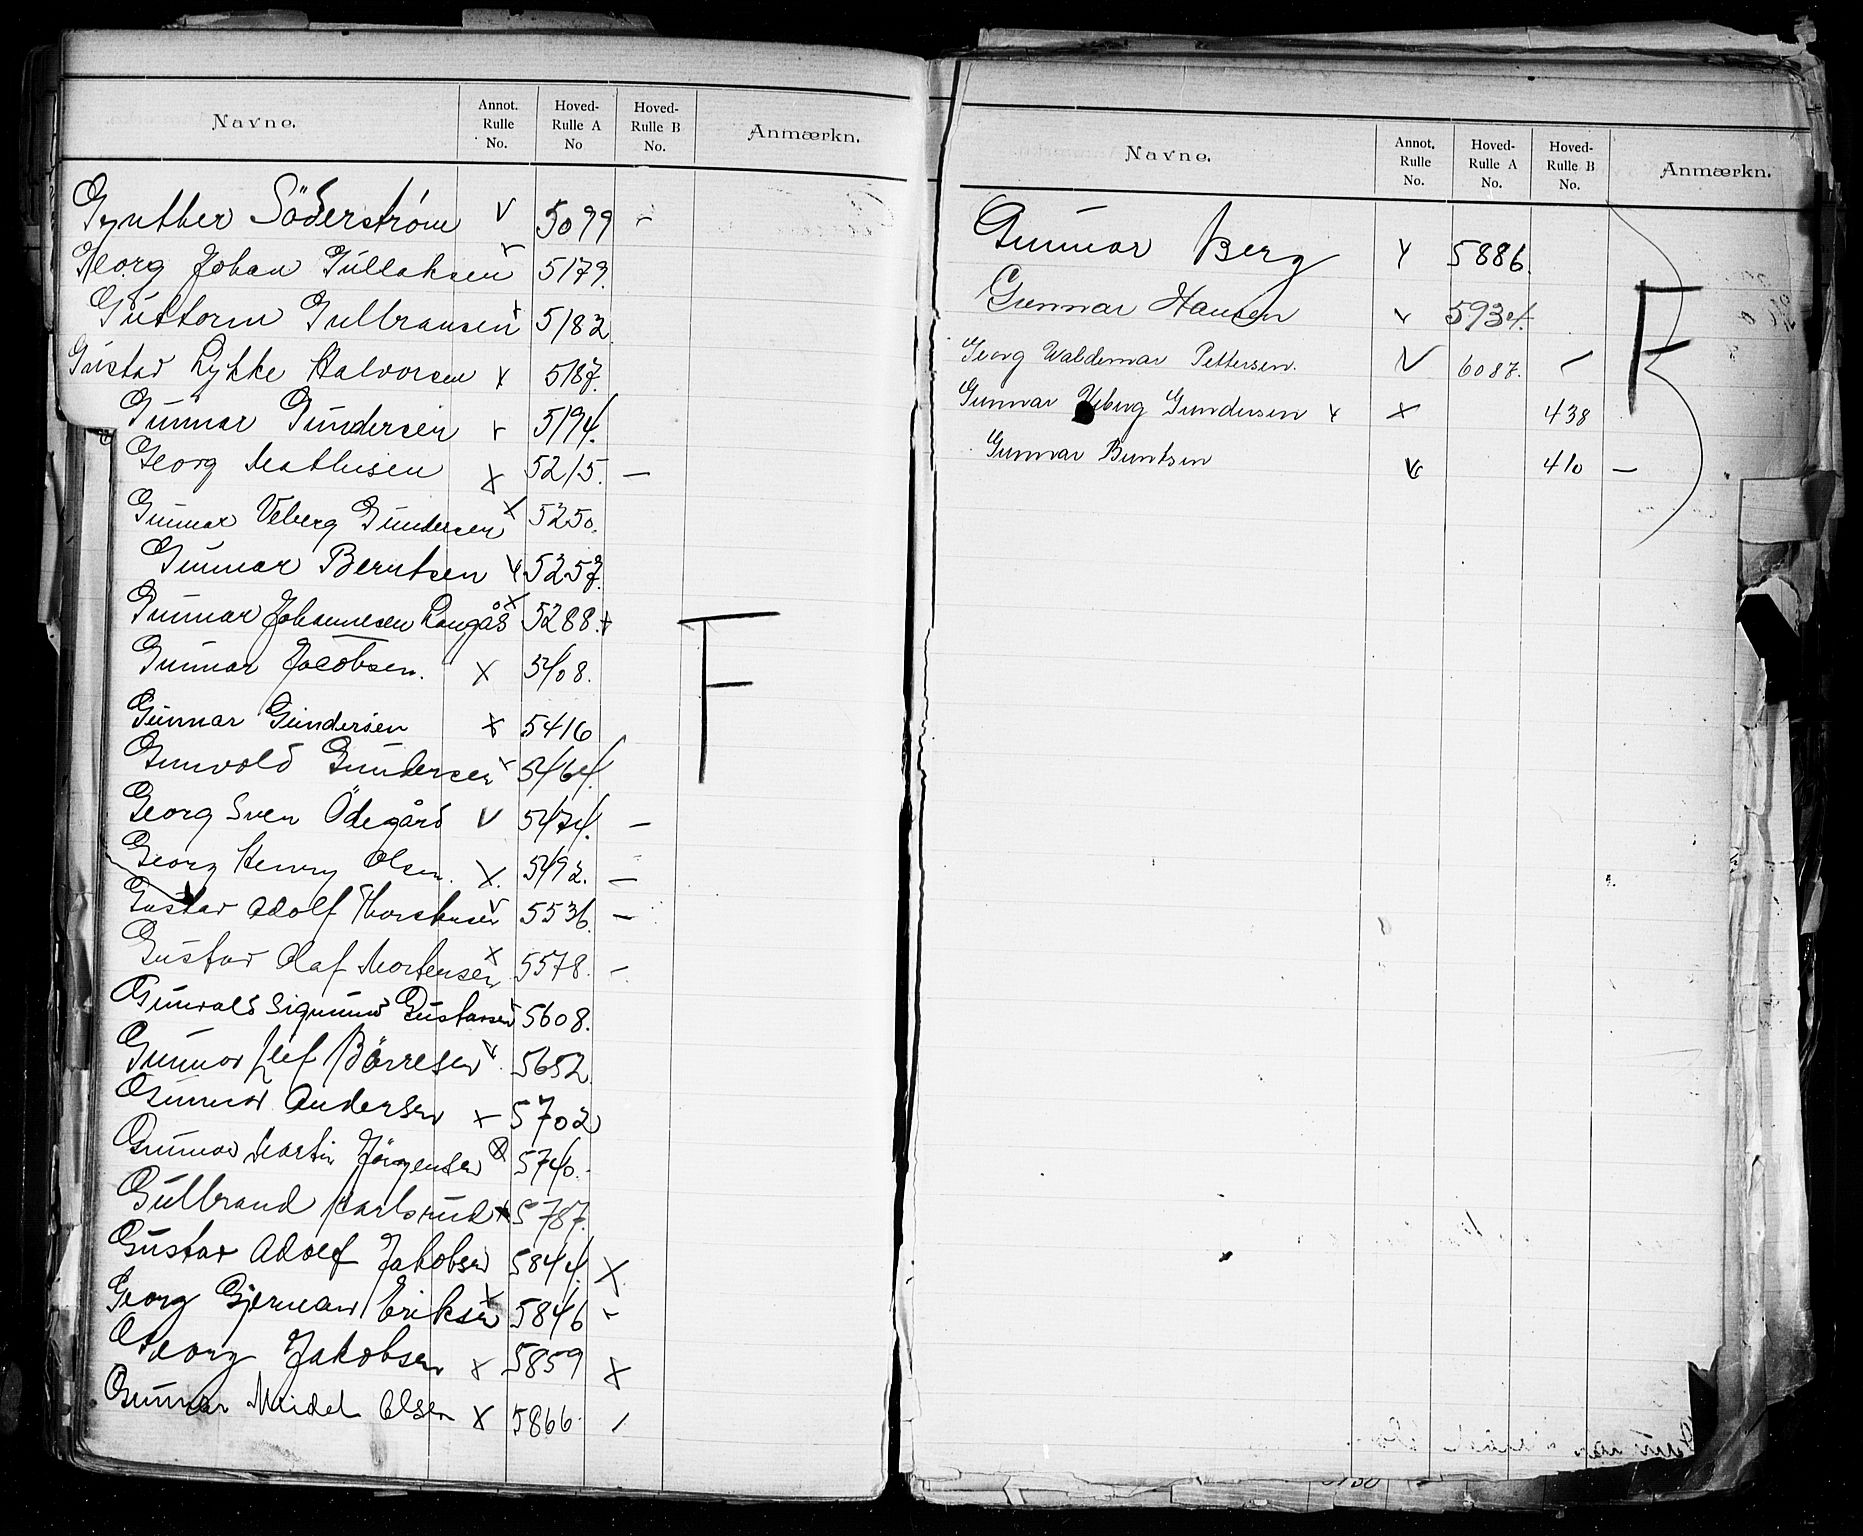 Navne. Annot. Rulle No. Hoved-Rulle A No Hoved-Rulle B No. Anmærkn.
Gynther Söderstrøm v 5099 -
Georg Johan Tullaksen v 5179.
Guttorm Gulbransen x 5182
Gustav Lykke Halvorsen x 5187.
Gunnar Gundersen v 5194.
Georg Mathisen x 5215. —
Gunnar Veberg Gundersen x 5250.
Gunnar Berntsen v 5257.
Gunnar Johannesen Langås x 5288. +
Gunnar Jacobsen. x 5408.
Gunnar Gundersen x 5416
Gunvold Gundersen v 5464.
Georg Sven Ödegård v 5474. —
Georg Henry Olsen. x. 5492. —
Gustav Adolf Thorstensen v 5536. —
Gustav Olaf Mortensen x 5578. -
Gunvald Sigmund Gustavsen 5608.
Gunnar Leif Börresen v 5652.
Gunnar Andersen x 5702
Gunnar Martin Jörgensen x 5740.
Gulbrand Karlsrud x 5787.
Gustav Adolf Jakobsen 5844. x
Georg Gjerman Eriksen x 5846 -
Georg Jakobsen x 5859 x
Gunnar Meidel Olsen x 5866. /
F
Navne. Annot. Rulle No. Hoved-Rulle A No. Hoved-Rulle B No. Anmærkn.
Gunnar Berg v 5886.
Gunnar Hansen v 5934.
Georg Waldemar Pettersen. v 6087. -
Gunnar Veberg Gundersen v x 438
Gunnar Berntsen v 410 —
F